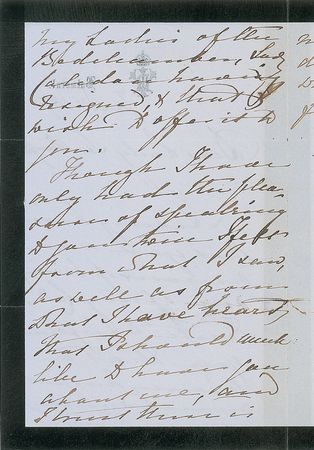 my Ladies of the
Bedchamber, Lady
Caledon having
resigned, & that I
wish to offer it to
you.
Though I have
only had the plea-
sure of speaking
to you twice I feel
from what I saw,
as well as from
what I have heard,
that I should much
like to have you
about me, and
I trust there is